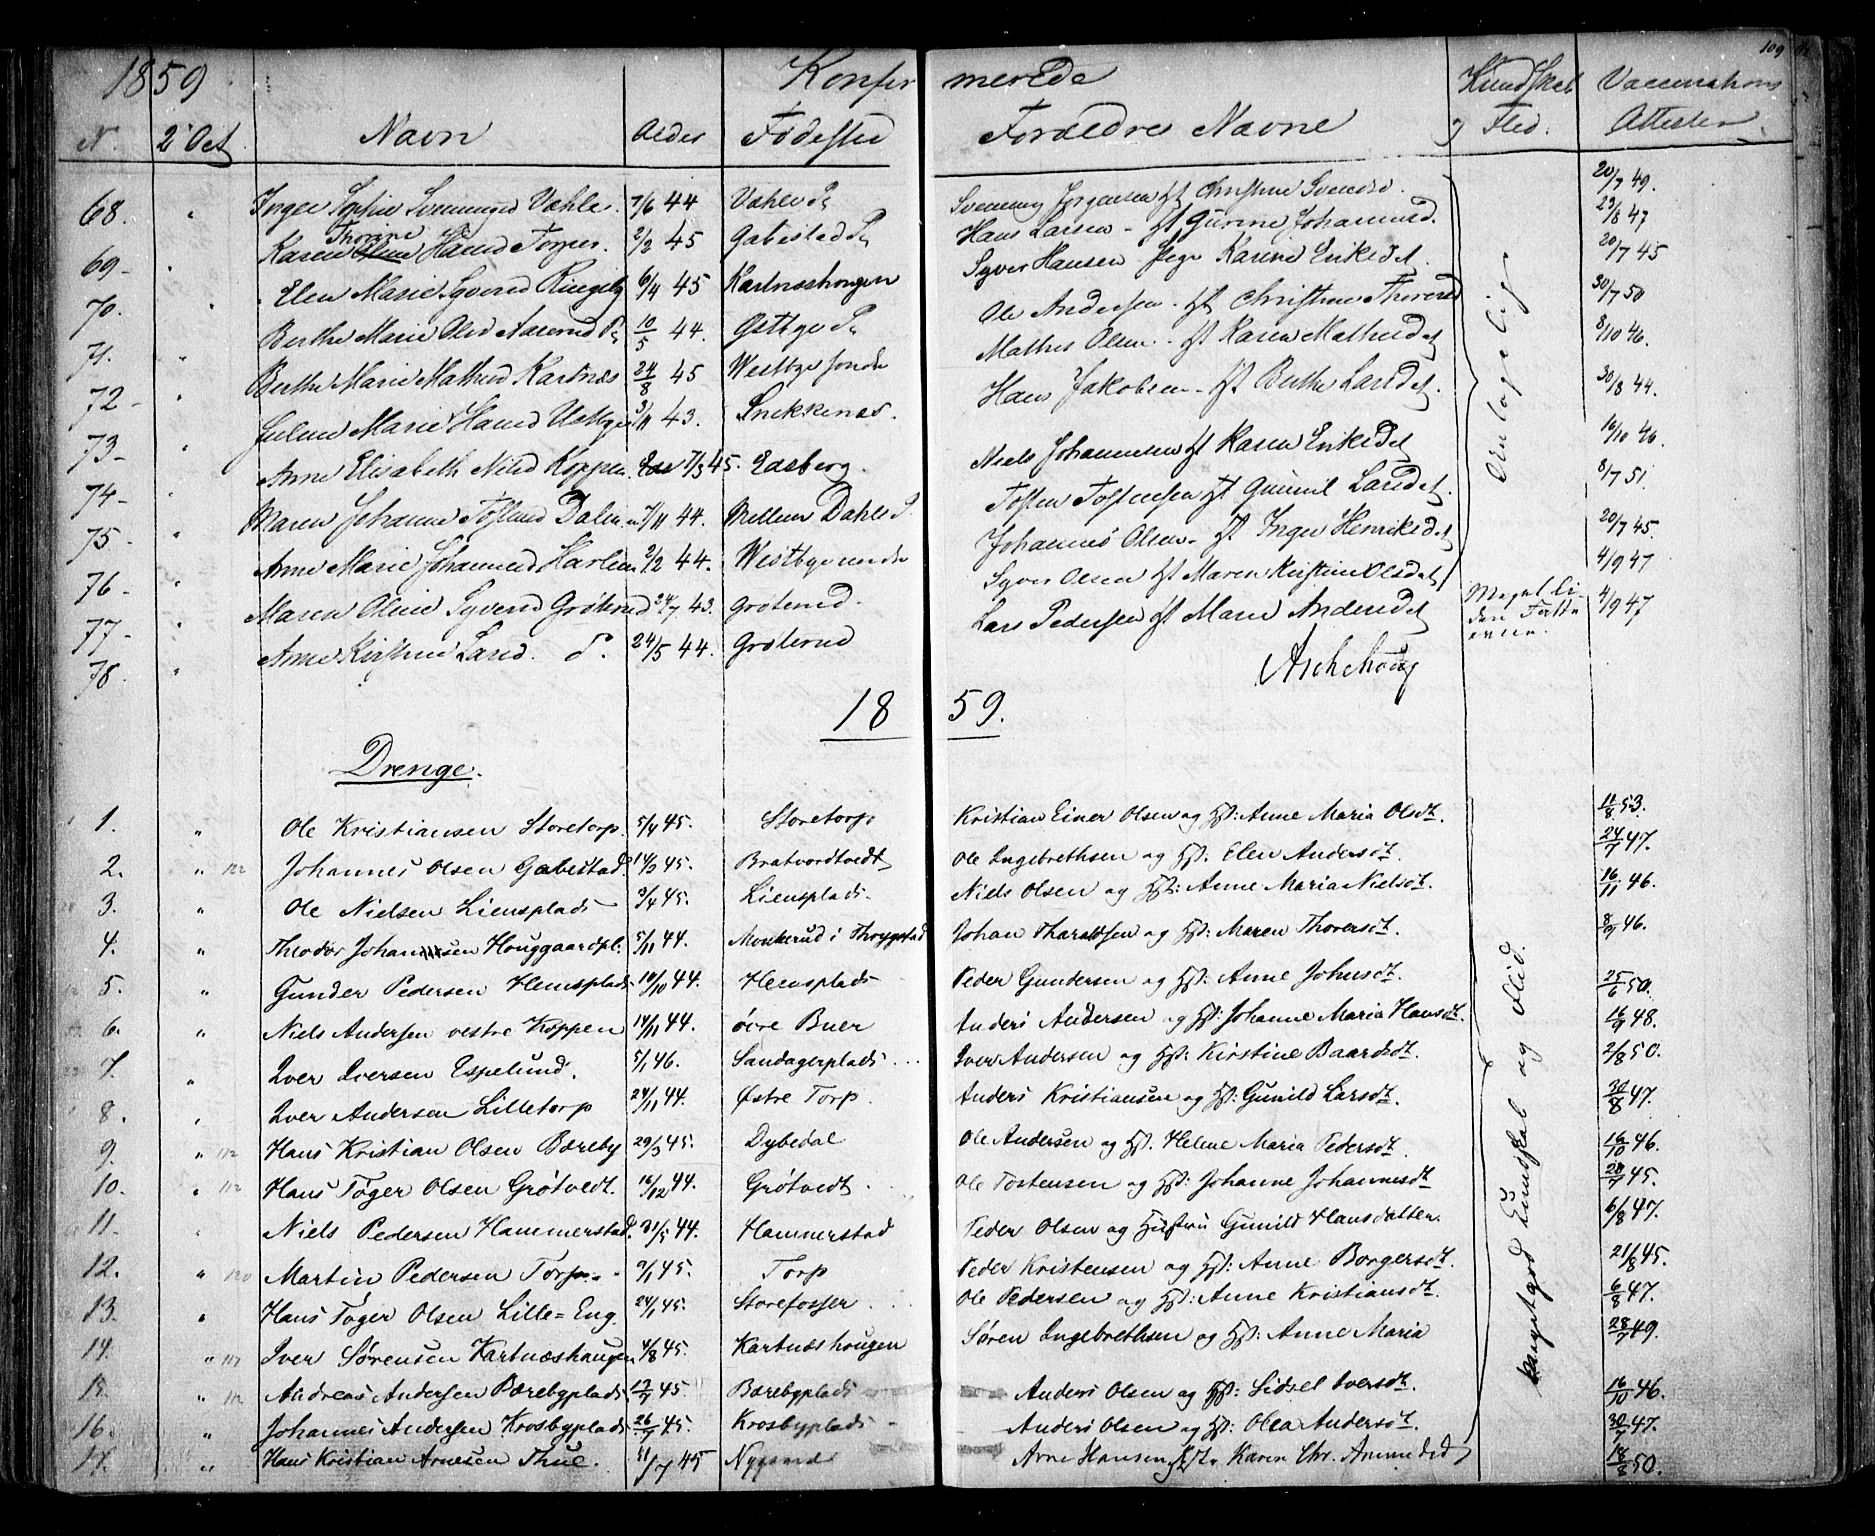 109
1859 Konfir merede Kundskab Vaccinations
N. 2 Oct Navn Alder Fødested Forældres Navne og Flid. Attester
68. " Inger Sofie Svenningsd Vahler 7/6 44 Vahler Pl Svenning Jørgensen Hst Christine Svensd. 20/7 49.
Thorine
69 - " Karen Oline Hansd Torper 2/2 45 Gabestad Pl Hans Larsen - Hst Gurine Johannesd. 23/8 47
70. " Elen Marie Syversd Ringeby 6/4 45 Kartnæshougen Syver Hansen Pige Karine Eriksdt. 20/7 45
71. " Berthe Marie Olsd Aaserud Pl 10/5 44. Østbye Pl Ole Andersen - Hst Christine Thoresd 30/7 50
72 - " Berthe Marie Mathisd Kartnæs 24/8 45 Westbye søndre Mathis Olsen - Hst Karen Mathisdt 8/10 46.
73 - " Juline Marie Hansd Østbye 3/11 43. Snekkenæs. Hans Jakobsen - Hst Berthe Larsdt. 30/8 44.
74 - " Anne Elisabeth Nilsd Koppen 7/3 45. Edsberg. Niels Johannesen Hst Karen Eriksdt 16/10 46.
75 - " Maren Johanne Tostensd Dalen 7/11 44. Mellem Dahls P. Tosten Tostensen Hst Gunnil Larsdt. 8/7 51.
76 - " Anne Marie Johannesd Harlem 2/2 44. Westbye nordre Johannes Olsen - Hst Inger Henriksdt 20/7 45.
77 - " Maren Oline Syversd Grøterud 24/7 43. Grøterud. Syver Olsen Hst Maren Kirstine Olsdt 4/9 47
78. " Anne Kirstine Larsd. P. 24/5 44. Grøterud Lars Pedersen Hst Maren Andersdt Meget li- 4/9 47
den Fatte
evne.
Antagelig
Aschehoug
18 59.
Drenge.
1. " Ole Kristiansen Storetorp. 5/4 45. Storetorp Kristian Einer Olsen og Hst: Anne Maria Olsdt. 11/8 53.
2. " 122 Johannes Olsen Gabestad 14/3 45. Bratvordtvedt Ole Ingebrethsen og Hst. Elen Andersdt. 24/7 47.
3. " Ole Nielsen Liensplads 3/4 45. Liensplads. Niels Olsen og Hst: Anne Maria Nielsdt. 16/11 46.
4. " Theodor Johannsen Houggaardpl. 5/11 44. Monkerud i Thrygstad Johan Tharaldsen og Hst: Maren Thoversdt. 8/9 46.
5. " Gunder Pedersen Hemsplads 10/10 44. Hemsplads Peder Gundersen og Hst: Anne Johnsdt. 25/6 50.
6. " Niels Andersen vestre Koppen 14/11 44. øvre Buer Anders Andersen og Hst: Johanne Maria Hansdt. 16/9 48.
7. " Iver Iversen Espelund. 5/1 46. Sandagerplads Iver Andersen og Hst: Kirstine Baardsdt. 2/8 50.
8. " Iver Andersen Lilletorp 24/11 44. Østre Torp. Anders Kristiansen og Hst: Gunild Larsdt. 30/8 47.
9. " 112 Hans Kristian Olsen Bæreby 29/3 45. Dybedal Ole Andersen og Hst. Helene Maria Pedersdt. 16/10 46.
10. " 112 Hans Tøger Olsen Grøtvedt. 16/12 44. Grøtvedt. Ole Tostensen og Hst: Johanne Johannesdt 20/7 45.
11. " Niels Pedersen Hammerstad. 31/5 44. Hammerstad Peder Olsen og Hustru Gunild Hansdatter. 6/8 47.
12. " 120 Martin Pedersen Torp. 9/1 45. Torp Peder Kristensen og Hst: Anne Borgersdt. 21/8 45.
13. " Hans Tøger Olsen Lille=Eng. 24/1 45. Storefosser Ole Pedersen og Hst: Anne Kristiansdt. 6/8 47.
14. " 117 Iver Sørensen Kartnæshaugen 4/8 45. Kartnæshougen Søren Ingebrethsen og Hst: Anne Maria 28/7 49.
15. " 112 Andreas Andersen Bærebyplads 17/7 45. Bærebyplads Anders Olsen og Hst: Lidsel Iversdt. 16/10 46.
16. " Johannes Andersen Krosbyplads 26/7 45. Krosbyplads Anders Olsen og Hst: Olea Andersdt. 30/7 47.
17. " Hans Kristian Arnesen Thue. 11/7 45 Arne Hansen Hst. Karen Chr. Ammundsd 14/8 50.
Meget god Kundskab og Flid.